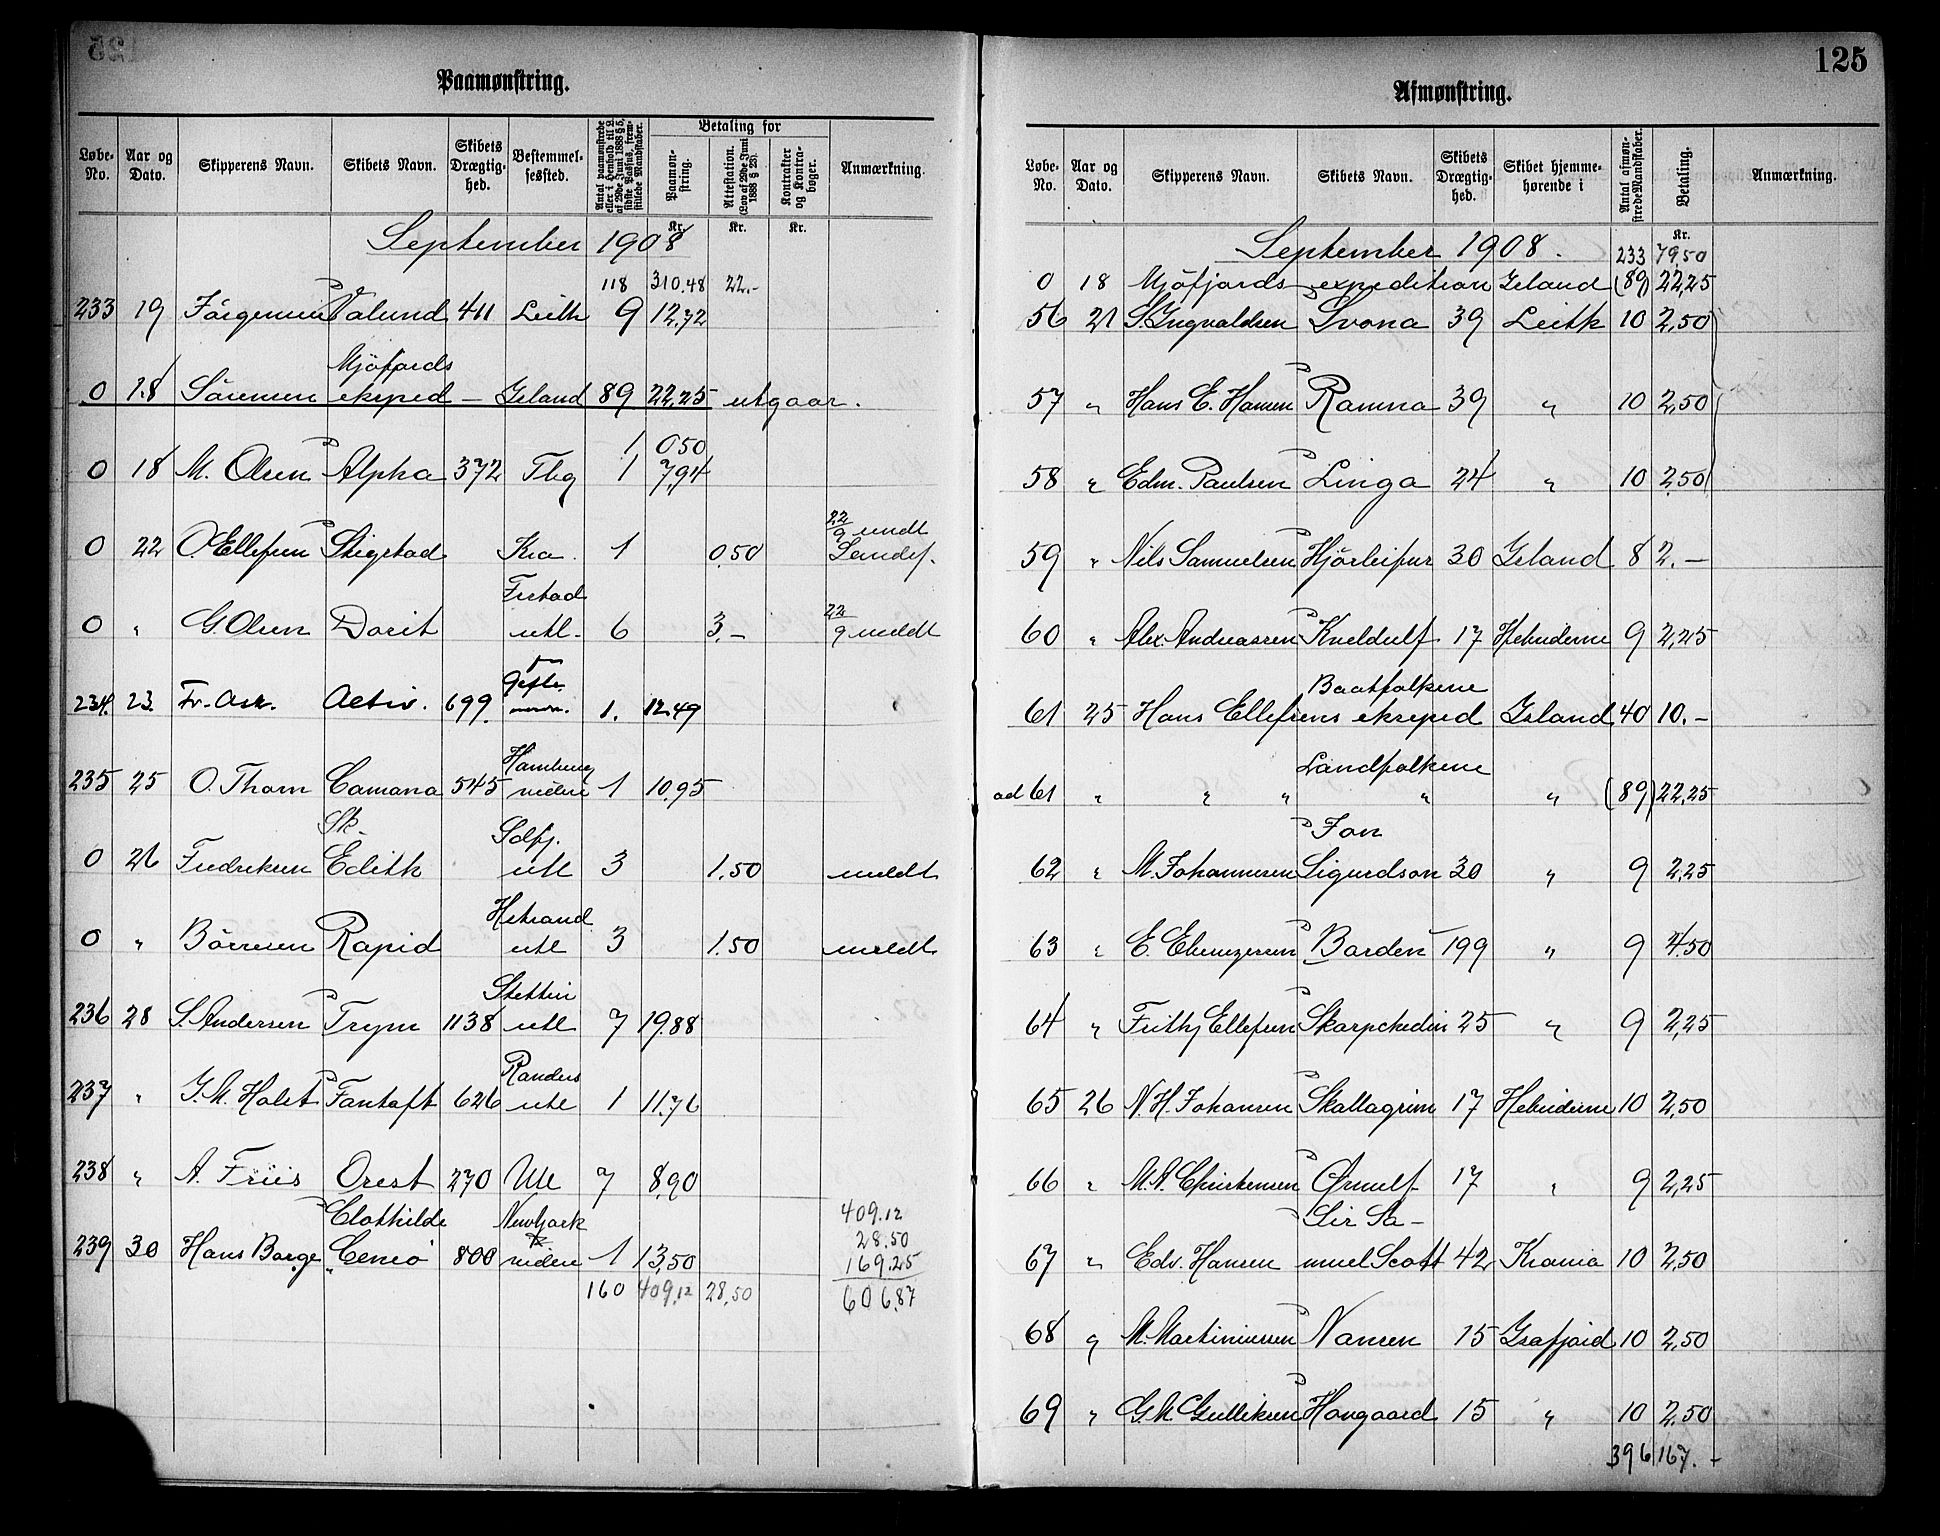 125
Paamønstring.
Løbe-No. Aar og Dato. Skipperens Navn. Skibets Navn. Skibets Drægtig-hed. Bestemmel-sessted. Antal paamønstrede eller i Henhold til L. af 29de Juni 1888 § 5, sidste Passus, frem-stillede Mandskaber. Betaling for Paamøn-string. Attestation. (Lov af 29de Juni 1888 § 23). Kontrakter og Kontra-bøger. Anmærkning.
Kr. Kr. Kr.
September 1908
118 310.48 22.-
233 19 Jörgensen Valund 411 Leith 9 12,72
Mjöfjords
0 18 Sörensen eksped — Island 89 22,25 utgaar.
1 050
0 18 M. Olsen Alpha 372 Tbg 1 7,94
22/9 meldt
0 22 O. Ellefsen Skigstad Kra. 1 0,50 Sandef.
Frstad 22
0 " G. Olsen Dorit utl. 6 3,- 9 meldt
Gefle
234. 23. Fr. Ask. Activ. 699. 1. 12.49
Hamburg
235 25 O. Thom Camana 545 videre 1 10.95
Sk. Solfj.
0 26 Fredriksen Edith utl 3 1.50 meldt
Hstrand
0 " Börresen Rapid utl 3 1.50 meldt
Stettin
236 28 S. Andersen Trym 1138 utl 7 19.88
Randers
237 " J. M. Holst Fantoft 626 utl 1 11.76
238 " A. Friis Orest 270 Utl 7 8,90
Clothilde New York 409.12
28.50
239 30 Hans Borge Cenio 800 videre 1 13,50 169.25
160 409.12 28,50 606.87
Afmønstring.
Løbe-No. Aar og Dato. Skipperens Navn. Skibets Navn. Skibets Drægtig-hed. Skibet hjemme-hørende i Antal afmøn-strede Mandskaber. Betaling. Anmærkning.
Kr.
September 1908. 233 79,50
0 18 Mjöfjords expedition Island (89) 22,25
56 21 S. Ingvaldsen Svona 39 Leith 10 2,50
57 " Hans E. Hansen Ramna 39 " 10 2,50
58 " Edm. Paulsen Linga 24 " 10 2,50
59 " Nils Samuelsen Hjörleifur 30 Island 8 2.—
60 " Alex. Andreassen Kveldulf 17 Hebriderne 9 2,25
Baatfolkene
61 25 Hans Ellefsens eksped Island 40 10.-
Landfolkene
ad 61 " " " " " (89) 22,25
Jon
62 " M. Johannesen Sigurdson 30 " 9 2,25
63 " E. Ebenezersen Barden 199 " 9 4.50
64 " Frithj Ellefsen Skarpehedin 25 " 9 2,25
65 26 N. H. Johansen Skallagrim 17 Hebriderne 10 2,50
66 " M. A. Christensen Örnulf 17 " 9 2,25
Sir Sa-
67 " Edv. Hansen muel Scott 42 Krania 10 2,50
68 " M. Martiniussen Nansen 15 Isafjord 10 2,50
69 " G. M. Gulliksen Havgaard 15 " 10 2.50
396 167.-